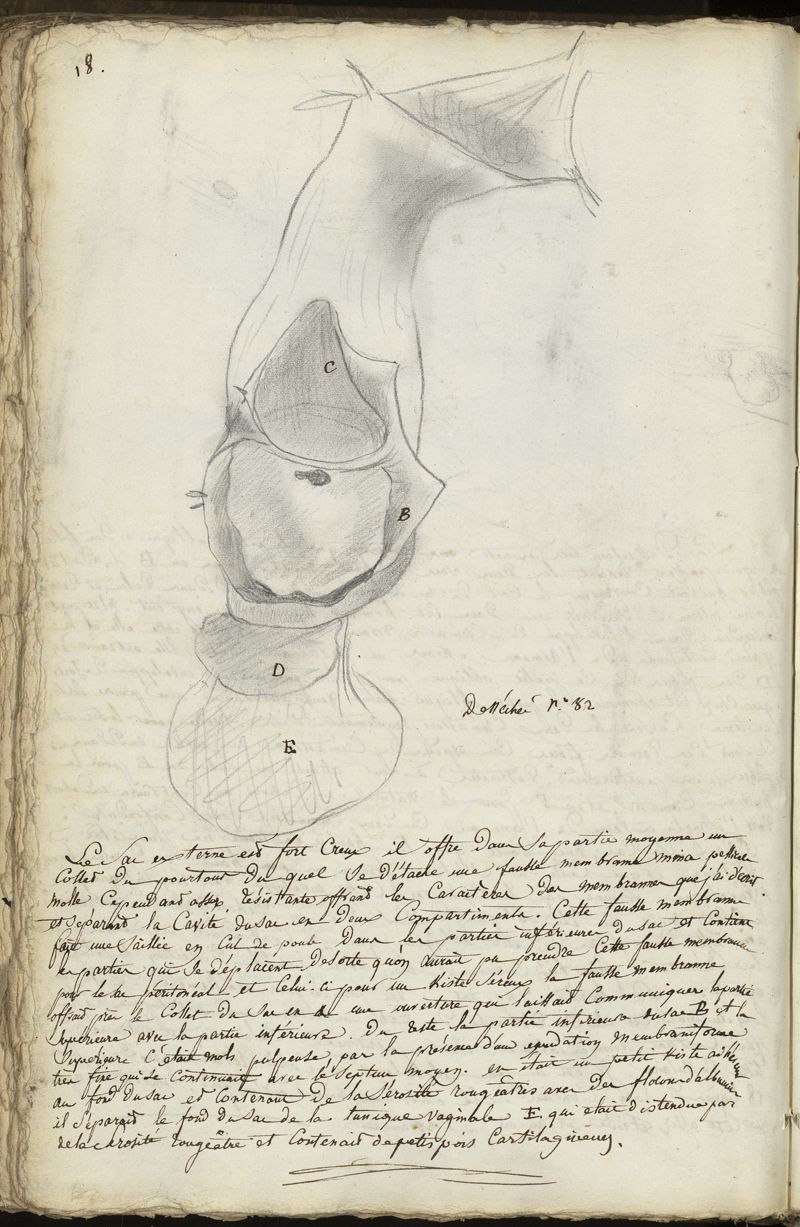 18.
C
B
D
E
Desséché n.° 82
Le Sac externe est fort Creux il offre dans Sa partie moyenne un
Collet du pourtour du quel Se détache une fausse membrane mince
molle Cependant assez résistante offrant les Caracteres des membranes que j'ai décrit
et séparant la Cavité du sac en deux Compartiments. Cette fausse membrane
fait une Saillie en Cul de poule Dans les parties inferieures du sac et Contient
les parties qui Se déplaient desorte qu'on aurait pu prendre Cette fausse membrane
pour le sac péritonéal et Celui-ci pour un Kiste Séreux la fausse membranne
offrait près le Collet du Sac en une ouverture qui laissait Communiquer la partie
Superieure avec la partie inferieure. Du reste la partie inferieure du sac B et la
Superieure C était mols pulpeuse, par la présence d'une exudation membraniforme
tres fine qui se Continuait avec le Septum moyen. en était un petit Kiste
au fond du sac et contenant de la Sérosité rougeâtre avec des flocons d'albumine
il Séparait le fond du sac de la tunique vaginale E. qui etait distendue par
de la sérosité rougeâtre et Contenait de petits pois Cartilagineux.